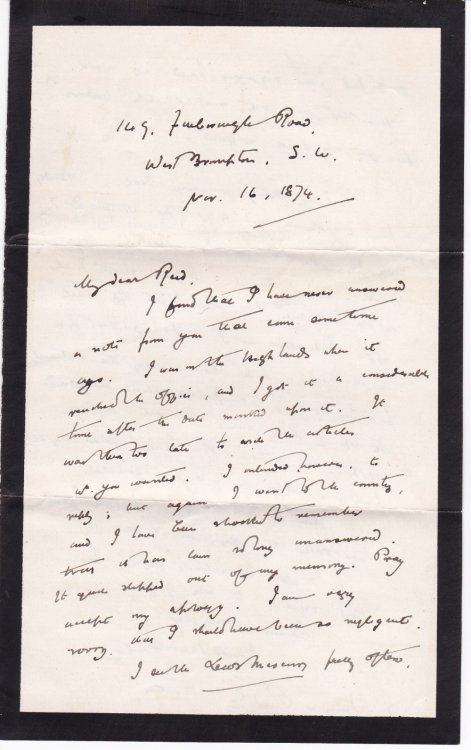 149, Finborough Road,
West Brompton, S. W.
Nov. 16, 1874.
My dear Reid,
I find that I have never answered
a note from you that came some time
ago. I was in the Highlands when it
reached the office, and I got it a considerable
time after the date marked upon it. It
was then too late to write the articles
as you wanted. I intended however, to
reply; but again I went to the country,
and I have been shocked to remember
that it has been so long unanswered.
It quite slipped out of my memory. Pray
accept my apology. I am very
sorry that I should have been so negligent.
I see the Leeds Mercury pretty often.